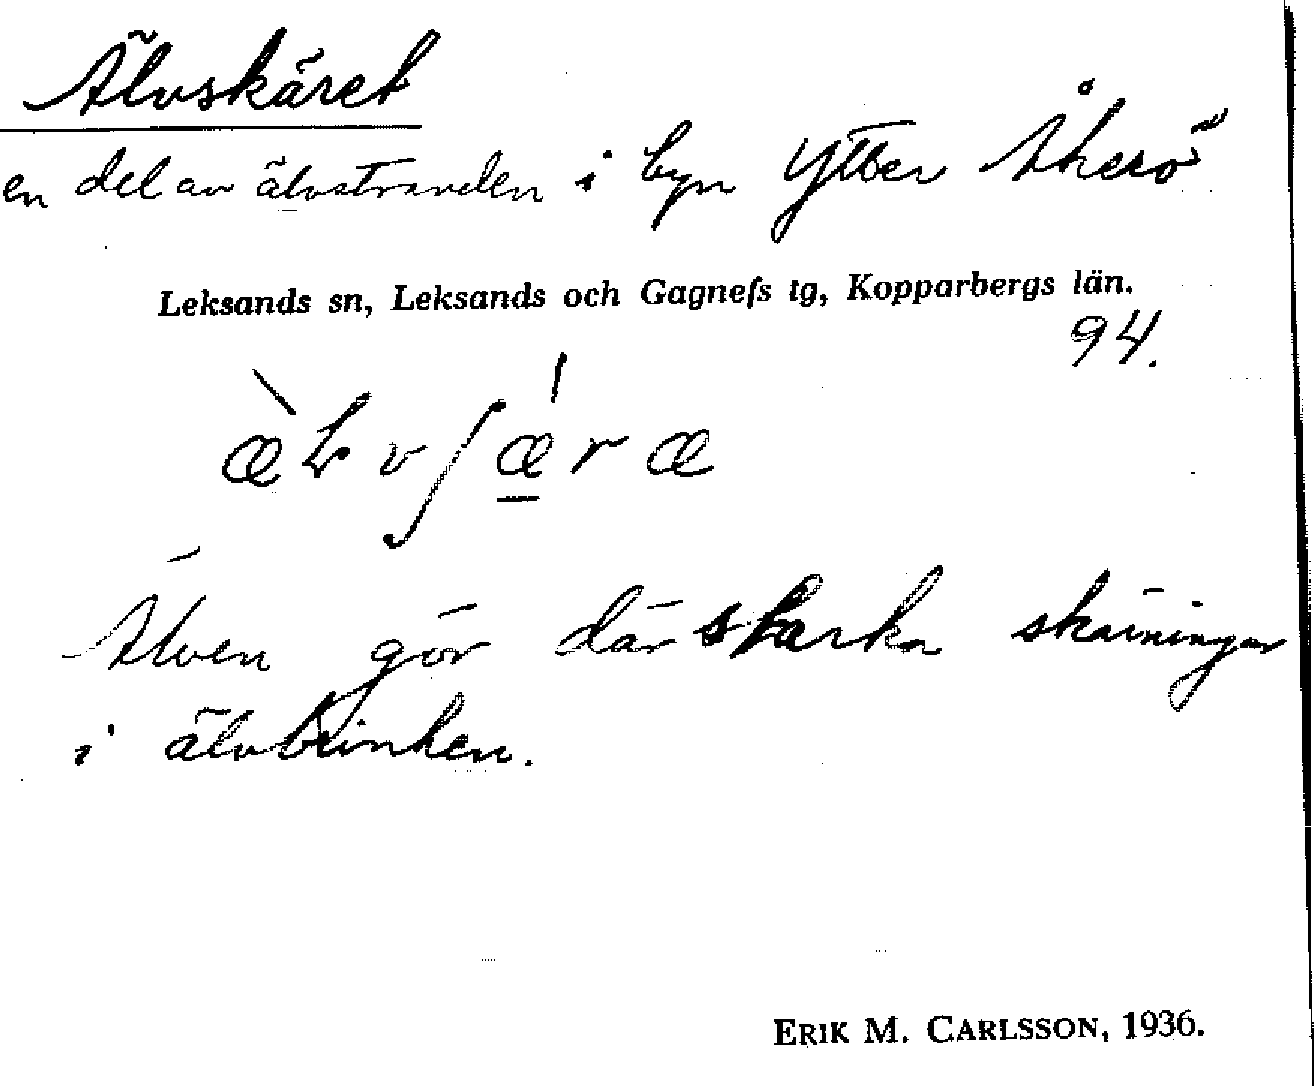 Älvskäret
en del av älvstranden i byn Ytter Åkerö
Leksands sn, Leksands och Gagnefs tg, Kopparbergs län.
94.
Älven gör där starka skärningar
i älvbrinken.
ERIK M. CARLSSON, 1936.